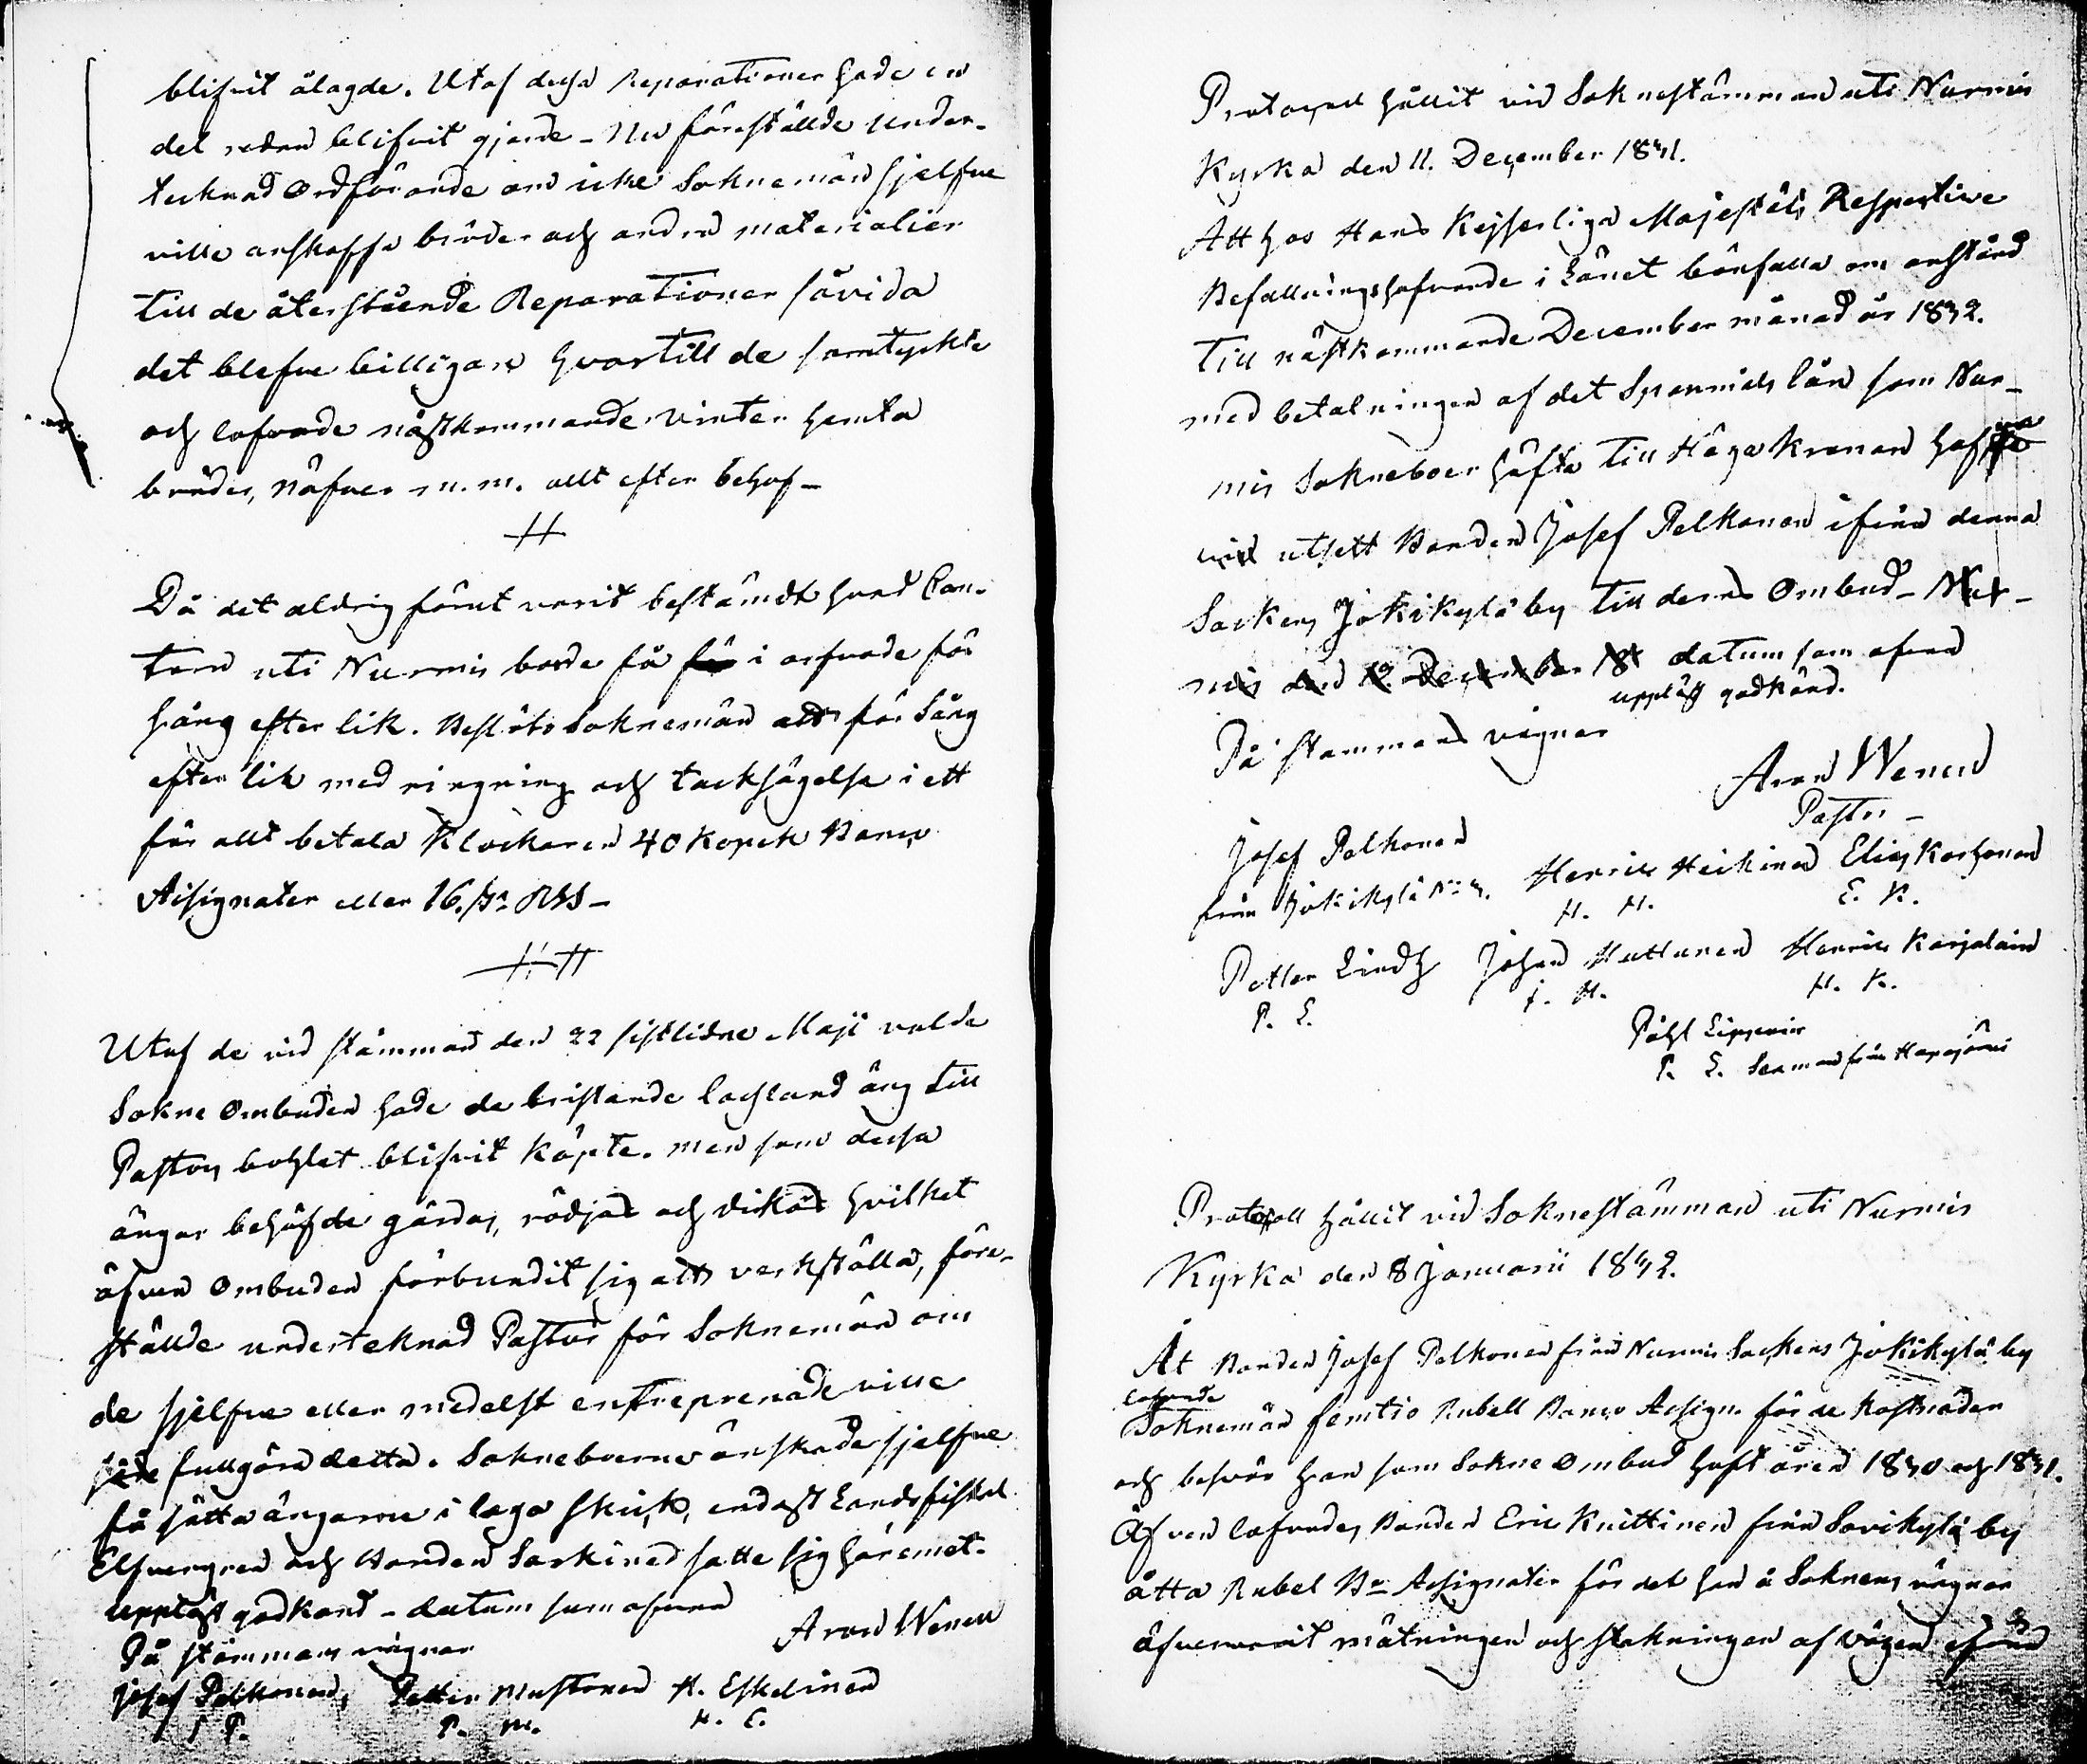 blifvit ålagde. Utaf dessa Reparationer hade en
del redan blifvit gjorde – Nu föreställde under-
tecknad Ordförande om icke Soknemän sjelfve
ville anskaffa bräder och andra materialier
till de återstående Reparationer såvida
det blefve billigare hvartill de samtyckte
och lofvade nästkommande vinter hemta
bräder, näfver m.m. allt efter behof –
Då det aldrig förut varit bestämdt hvad Can-
torn uti Nurmis borde få i arfvode för
sång efter lik. Beslöto Soknemän att för Sång
efter lik med ringning och tacksägelse i ett
för allt betala Klockaren 40 Kopek Banco
Assignater eller 16. sk. RGS –
Utaf de vid stämman den 22 sistlidne Maji valde
Sokne Ombuden hade de bristande lassland äng till
Pastors bohlet blifvit köpte. men som dessa
ängar behöfde gärdas, rödjas och dikas hvilket
äfven Ombuden förbundit sig att verkställa, före-
ställde undertecknad Pastor för Soknemän om
de sjelfve eller medelst entreprenade ville
fullgöra detta. Sokneboerne önskade sjelfve
få sätta ängarne i laga skick, endast Landsfiskal
Elfvengren och Bonden Saskinen satte sig häremot.
uppläst godkänd – datum som ofvan
På stämmans vägnar
Aron Wenell
Josef Pelkonen, Petter Mustonen H. Eskelinen
J P. P. M. H. E.
Protocoll hållit vid Soknestämman uti Nurmis
Kyrka den 11. December 1841.
Att hos Hans Kejserliga Majestäts Respective
Befallningshafvande i Länet bönfalla om anstånd
till nästkommande December månad år 1842.
med betalningen af det Spannmåls lån som Nur-
mis Sokneboer häfta till Höga Kronan hafva
vid utsett Bonden Josef Pelkonen ifrån denna
Sockens Jokikylä by till deras Ombud – Nur-
mis den December 18 datum som ofvan
uppläst godkänd.
På stämmans vägnar
Aron Wenell
Pastor –
Josef Pelkonen
från Jokikylä N:o
Henric Heikinen Elias Korhonen
H. H. E. K.
Petter Lindh Johan Huttunen Henric Karjalain
P. L. J. H. H. K.
Påhl Lippoin
P. L. från Haapajärvi
Protocoll hållit vid Soknestämman uti Nurmis
Kyrka den 8 Januarii 1842.
Åt Bonden Josef Pelkonen från Nurmis Sockens Jokikylä by
lofvade
Soknemän femtio Rubell Banco Assign. för de kostnader
och besvär han som Sokne Ombud haft åren 1840 och 1841.
Äfven lofvades Bonden Eric Knittinen från Savikylä by
åtta Rubel Bo Assignater för det han å Soknens vägnar
öfvervarit mätningen och stakningen af vägen ifrån